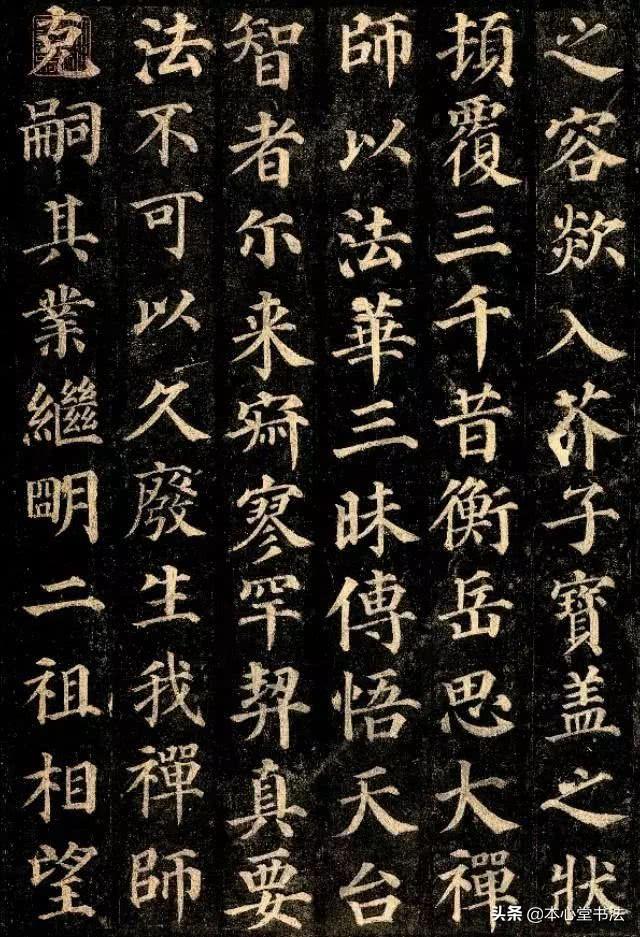 之容欻入芥子寶盖之狀
頃覆三千昔衡岳思大禪
師以法華三昧傳悟天台
智者尓来寂寥罕契真要
法不可以久廢生我禪師
克嗣其業繼明二祖相望
头条 @本心堂书法